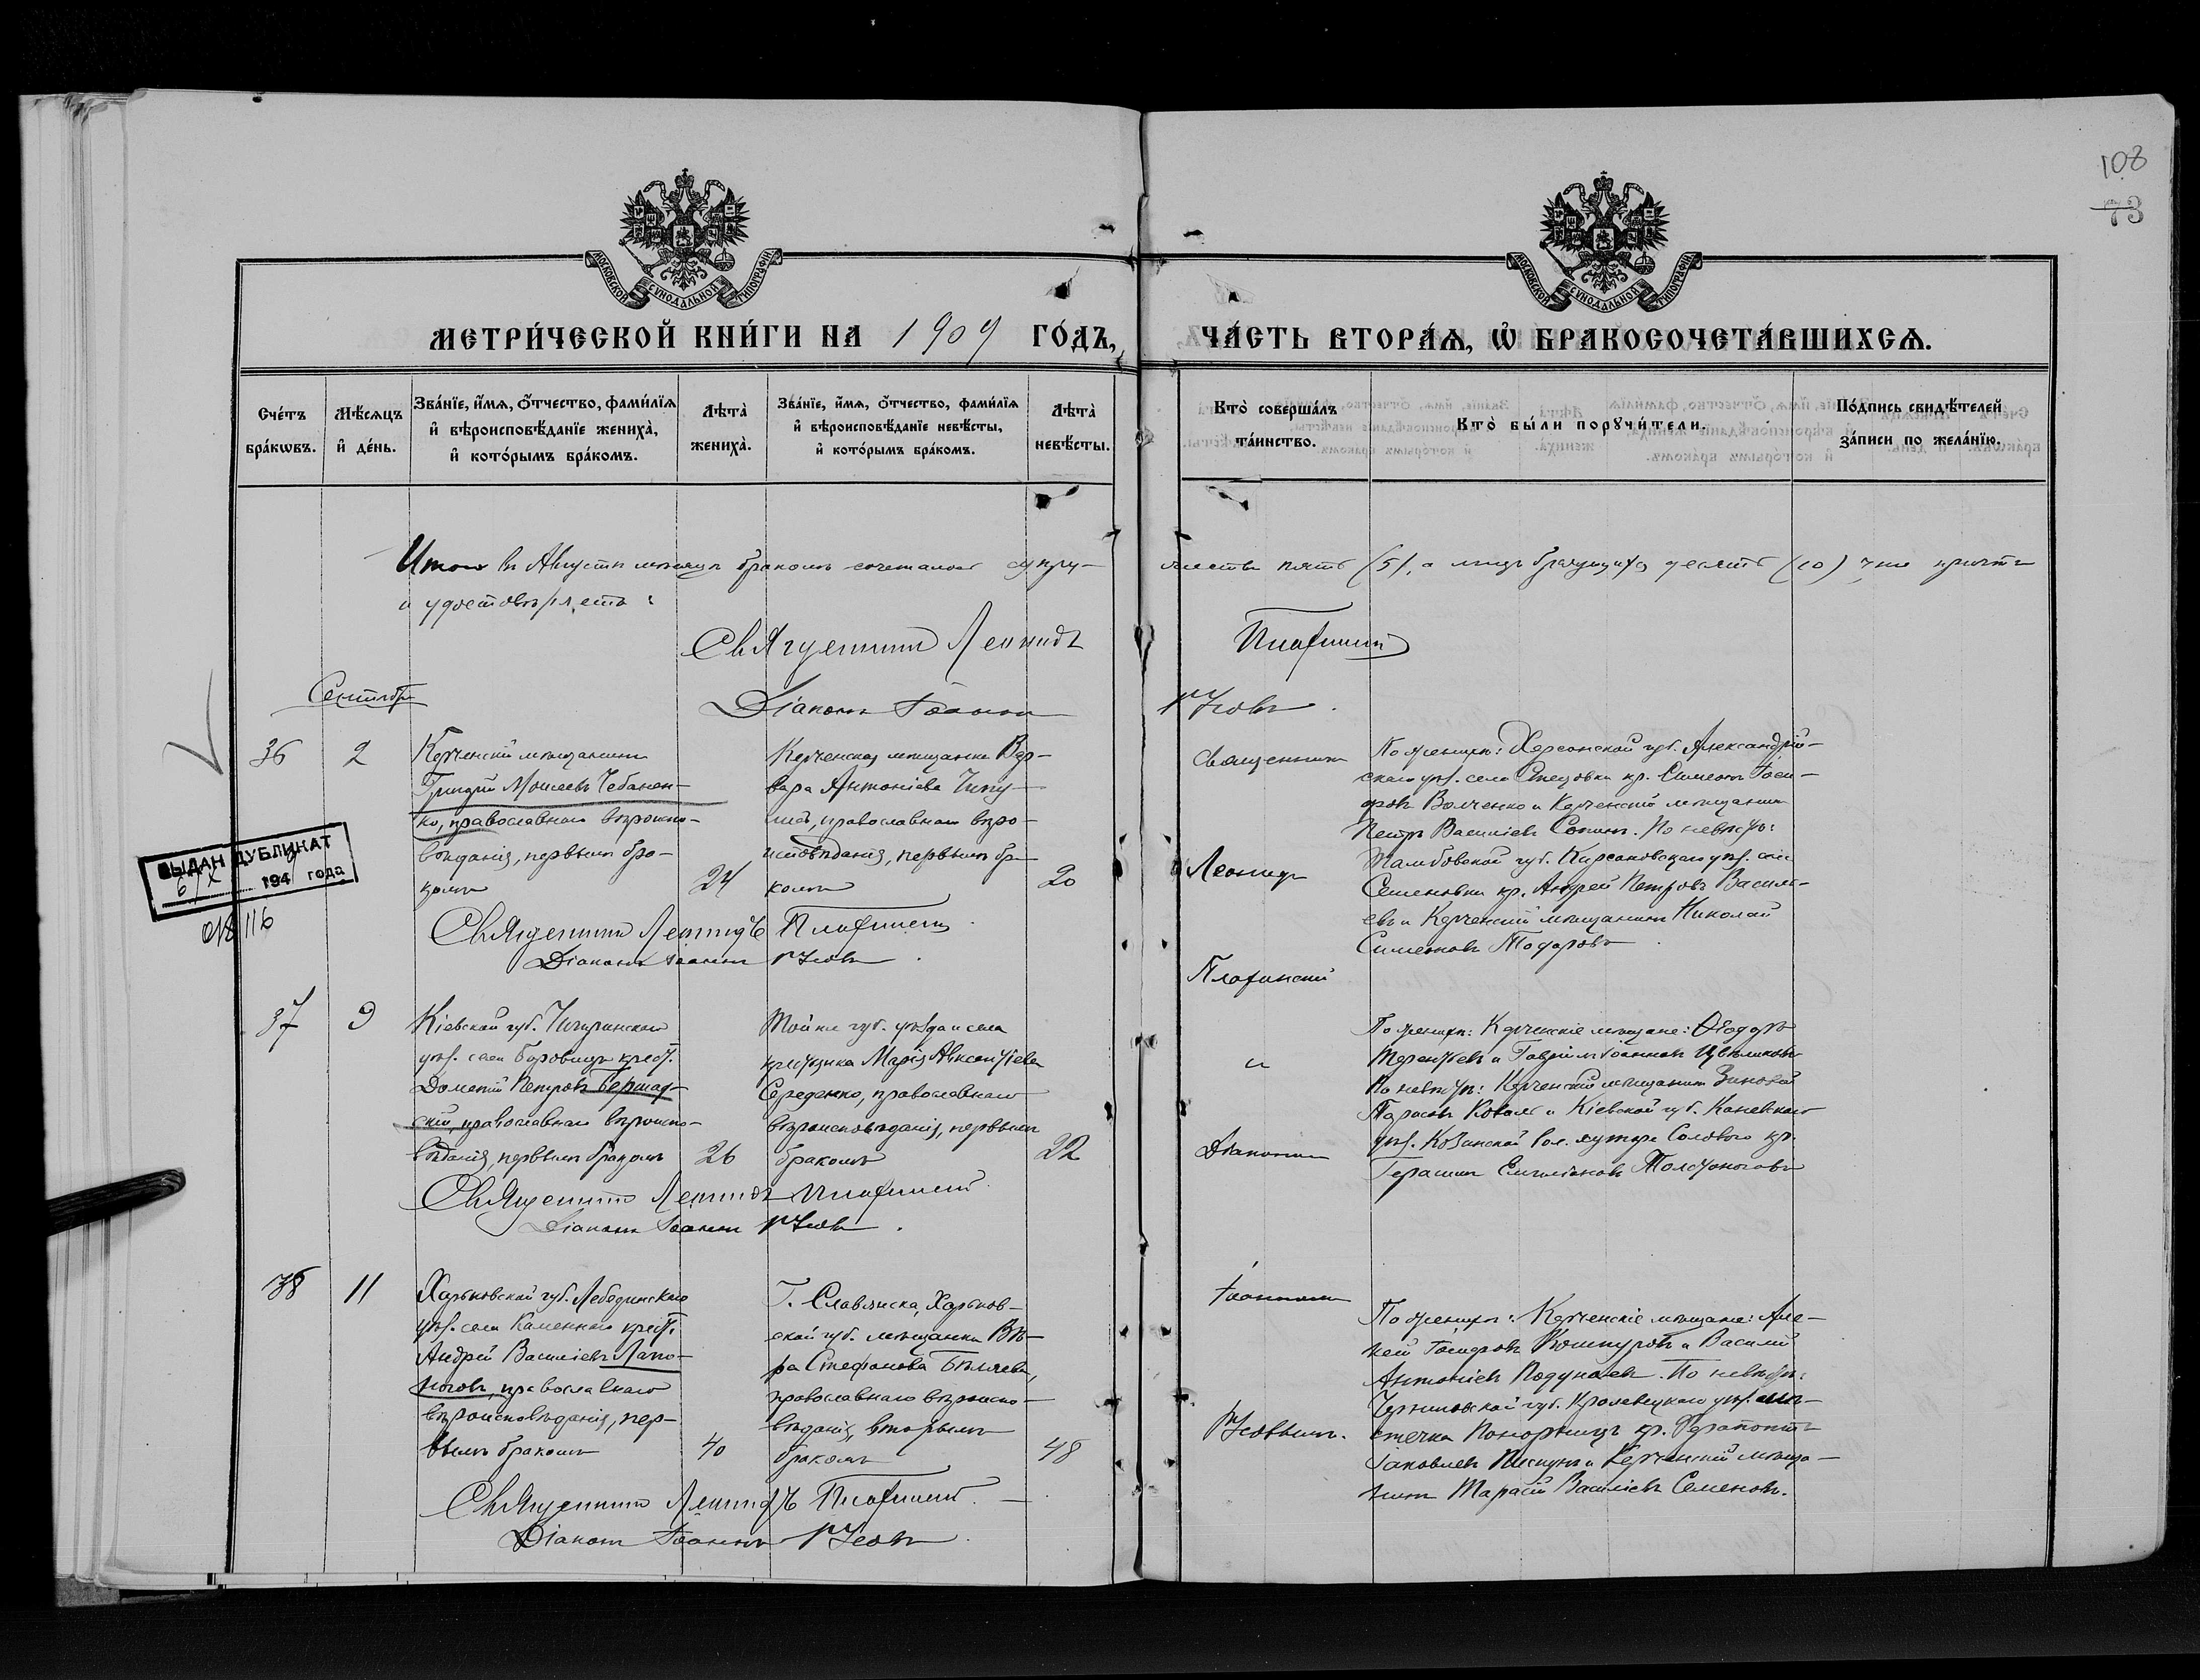 108
73
МОСКОВСКОЙ СѴНОДАЛЬНОЙ ТИПОГРАФІИ
МОСКОВСКОЙ СѴНОДАЛЬНОЙ ТИПОГРАФІИ
МЕТРИ́ЧЕСКОЙ КНИ́ГИ НА 1909 ГО́ДЪ,
ЧА́СТЬ ВТОРА́Ѧ, Ѽ БРАКОСОЧЕТА́ВШИХСѦ.
Сче́тъ бра́кωвъ.
Мѣ́сѧцъ и҆ де́нь.
Зва́нїе, и҆́мѧ, ѻ҆́тчество, фами́лїѧ и҆ вѣроисповѣ́данїе жениха̀, и҆ кото́рымъ бра́комъ.
Лѣта̀ жениха̀.
Зва́нїе, и҆́мѧ, ѻ҆́тчество, фами́лїѧ и҆ вѣроисповѣ́данїе невѣ́сты, и҆ кото́рымъ бра́комъ.
Лѣта̀ невѣ́сты.
Кто̀ соверша́лъ та́инство.
Кто̀ бы́ли порꙋчи́тели.
По́дпись свидѣ́телей за́писи по жела́нїю.
Итого въ Августѣ мѣсяцѣ бракомъ сочеталось супру-
жествъ пять (5), а лицъ брачущихся десять (10)
и удостовѣряемъ:
Священникъ Леонидъ
Діаконъ Іоаннъ Усовъ.
Сентябрь
36
2
Керченскій мѣщанинъ
Григорій Моисеевъ Чебанен-
ко, православнаго вѣроиспо-
вѣданія, первымъ бра-
комъ
24
Керченская мѣщанка Вар-
вара Антоніева
православнаго вѣро-
исповѣданія, первымъ бра-
комъ
20
Священникъ
Леонидъ
По женихѣ: Херсонской губ. Александрій-
скаго уѣз. села Стецовки кр. Симеонъ Іоси-
фовъ Волченко и Керченскій мѣщанинъ
Петръ Василіевъ Сопинъ. По невѣстѣ:
Тамбовской губ. Кирсановскаго уѣз. села
Семеновки кр. Андрей Петровъ Василь-
евъ и Керченскій мѣщанинъ Николай
Симеоновъ Тодоровъ
Священникъ Леонидъ
Діаконъ Іоаннъ Усовъ.
ВЫДАН ДУБЛИКАТ
6/X 194 года
116
37
9
Кіевской губ. Чигиринскаго
уѣз. села Боровицъ крест.
Дометій Петровъ Бершад-
скій, православнаго вѣроиспо-
вѣданія, первымъ бракомъ
26
Той же губ. уѣзда и села
крестьянка Марія Авксентіева
Середенко, православнаго
вѣроисповѣданія, первымъ
бракомъ
22
и
Діакономъ
По женихѣ: Керченскіе мѣщане: Ѳеодоръ
Терентьевъ и Гавріилъ Іоанновъ Цвѣтковъ
По невѣстѣ: Керченскій мѣщанинъ Зиновій
Тарасовъ Коваль и Кіевской губ. Каневскаго
уѣз. Козинской вол. хутора Соловаго кр.
Герасимъ Емиліановъ Толстоноговъ
Священникъ Леонидъ
Діаконъ Іоаннъ Усовъ.
38
11
Харьковской губ. Лебединскаго
уѣз. села Каменнаго крест.
Андрей Василіевъ Лапо-
ноговъ, православнаго
вѣроисповѣданія, пер-
вымъ бракомъ
40
Г. Славянска, Харьков-
ской губ. мѣщанка Вѣ-
ра Стефанова Бѣляева,
православнаго вѣроиспо-
вѣданія, вторымъ
бракомъ
48
Іоанномъ
Усовымъ.
По женихѣ: Керченскіе мѣщане: Але-
ксѣй Іосифовъ и Василій
Антоніевъ Подунаевъ. По невѣстѣ:
Черниговской губ. Кролевецкаго уѣз. мѣ-
стечка Понорницъ кр. Ферапонтъ
Іаковлевъ Пискунъ и Керченскій мѣща-
нинъ Тарасій Василіевъ Семеновъ.
Священникъ Леонидъ
Діаконъ Іоаннъ Усовъ.